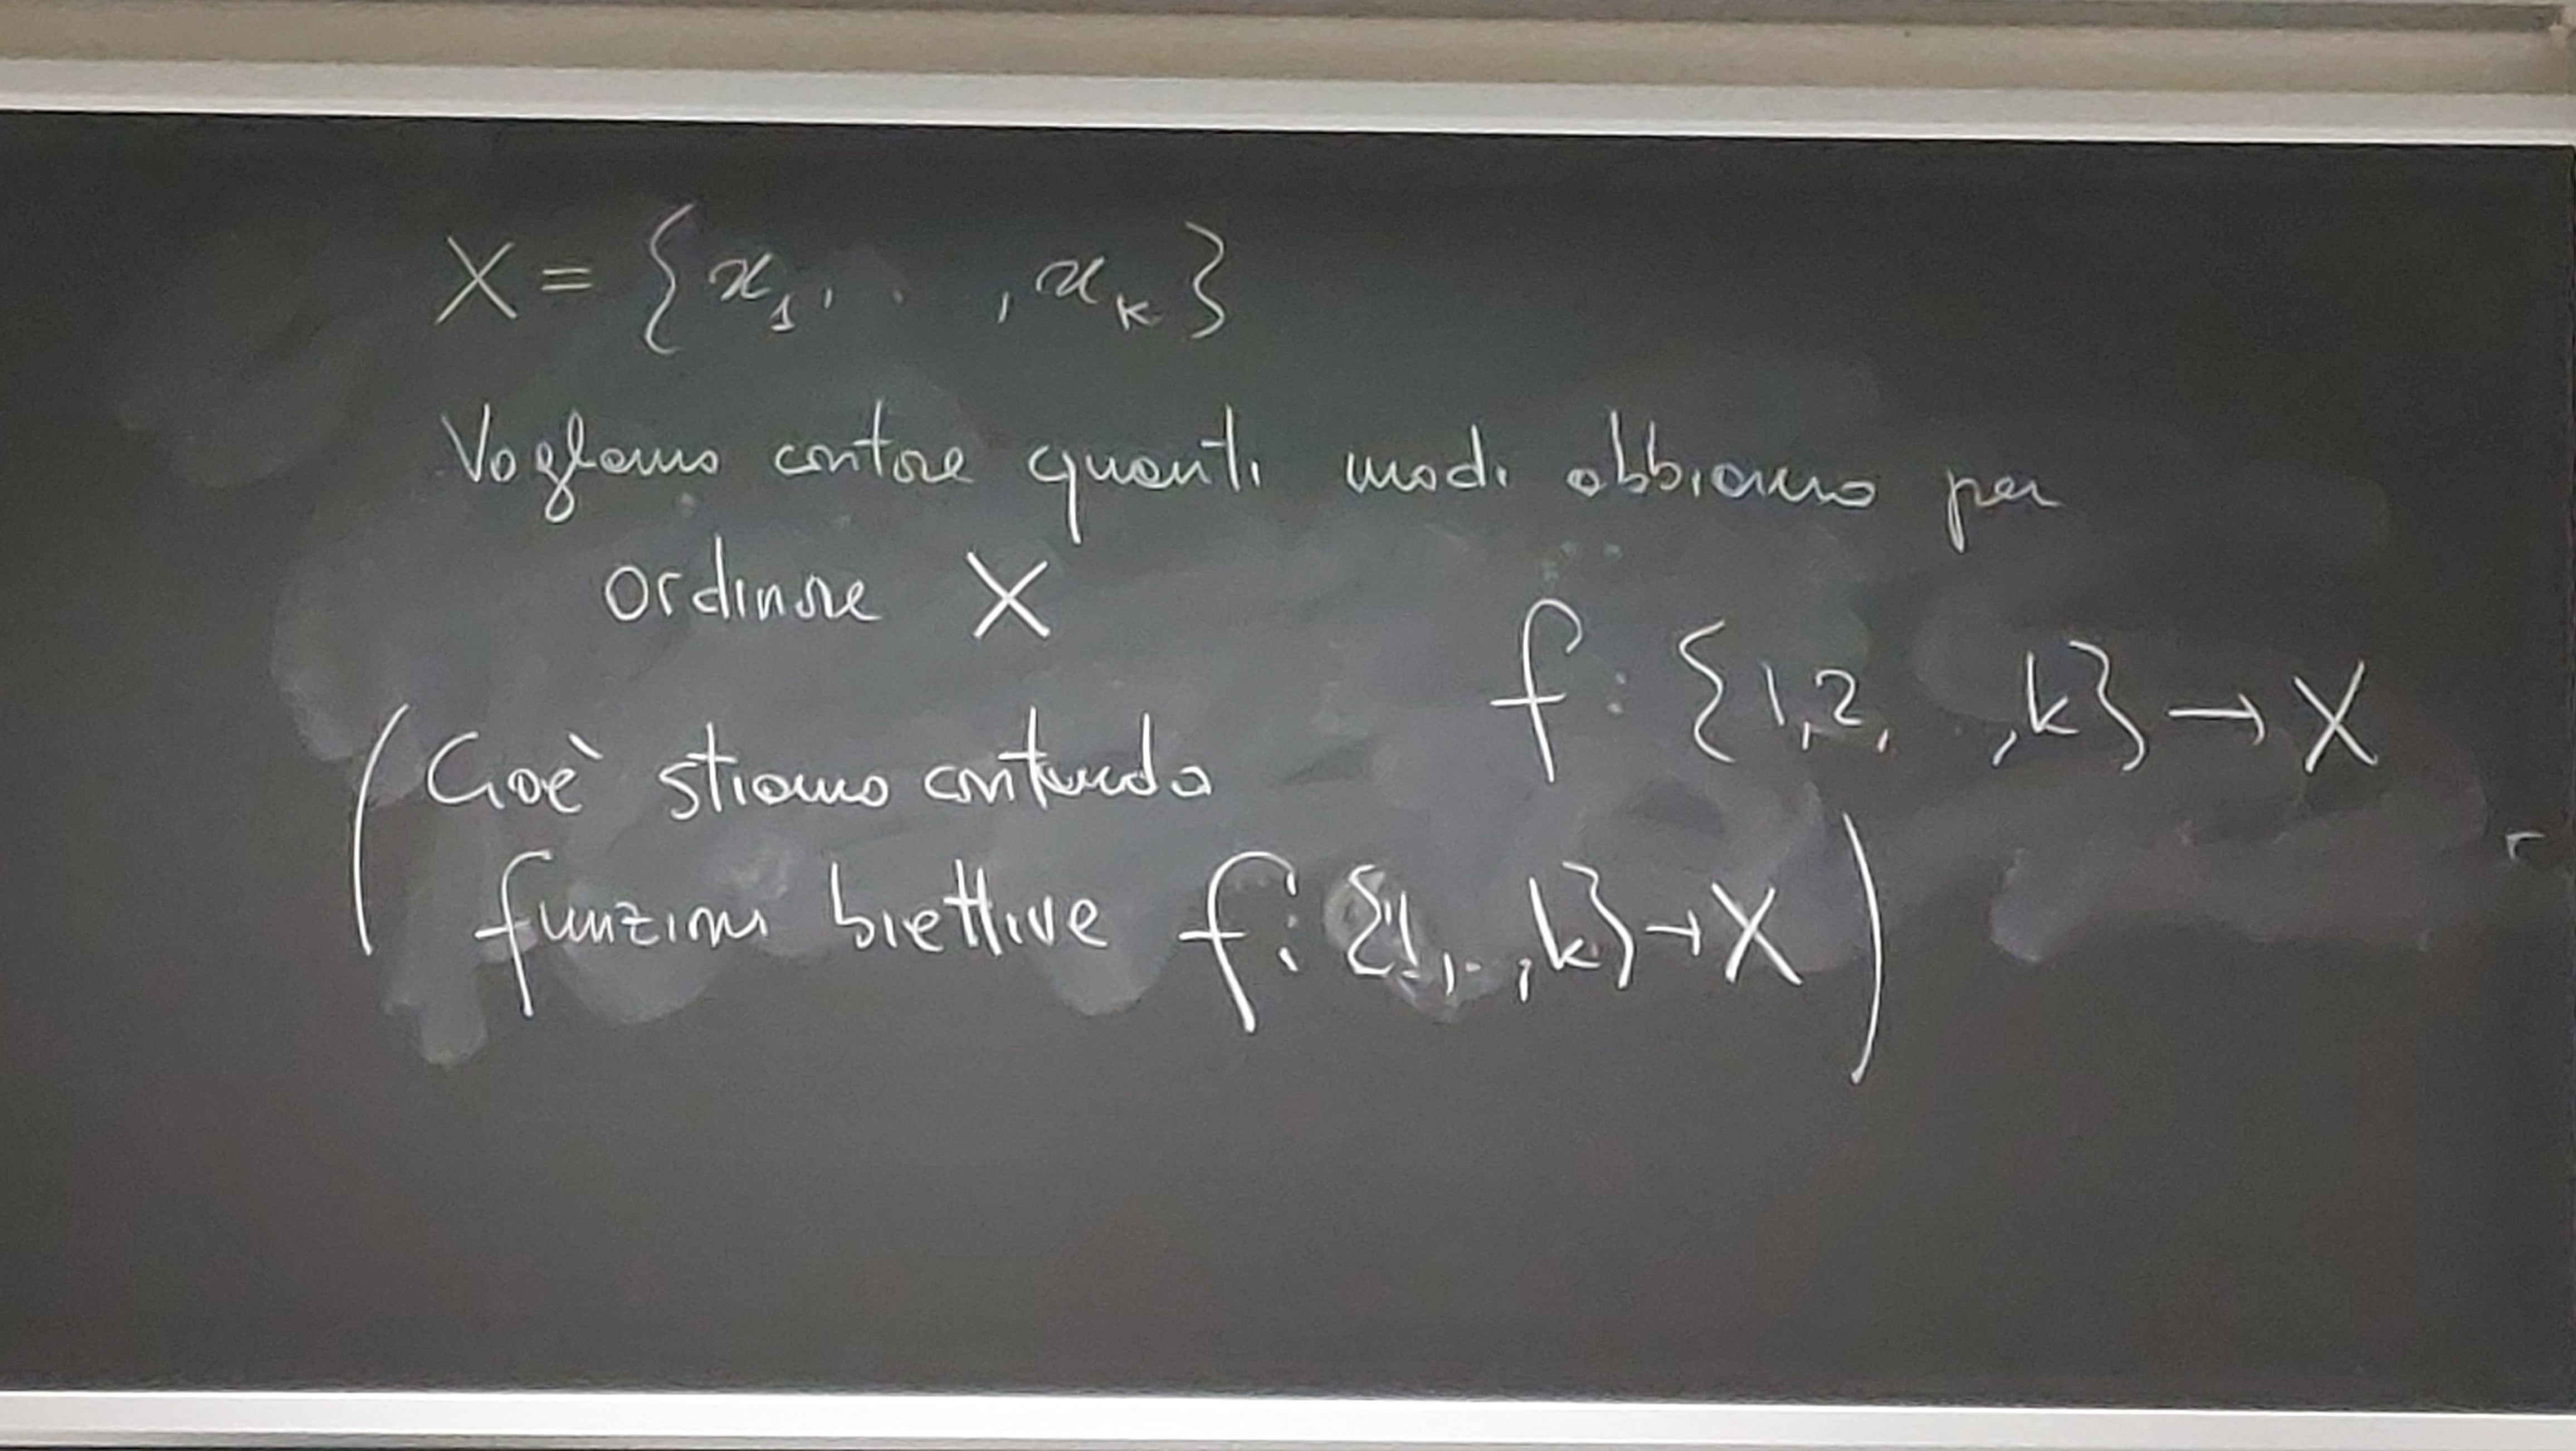 X = { x₁, . . , xₖ }
Vogliamo contare quanti modi abbiamo per
ordinare X
f : {1,2, . . ,k} → X
( Cioè stiamo contando
funzioni biettive f : {1, . . ,k} → X )